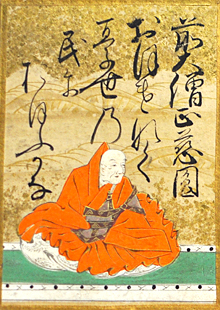 前大僧正慈圓
おほけなく
うき世乃
民に
おほふかな